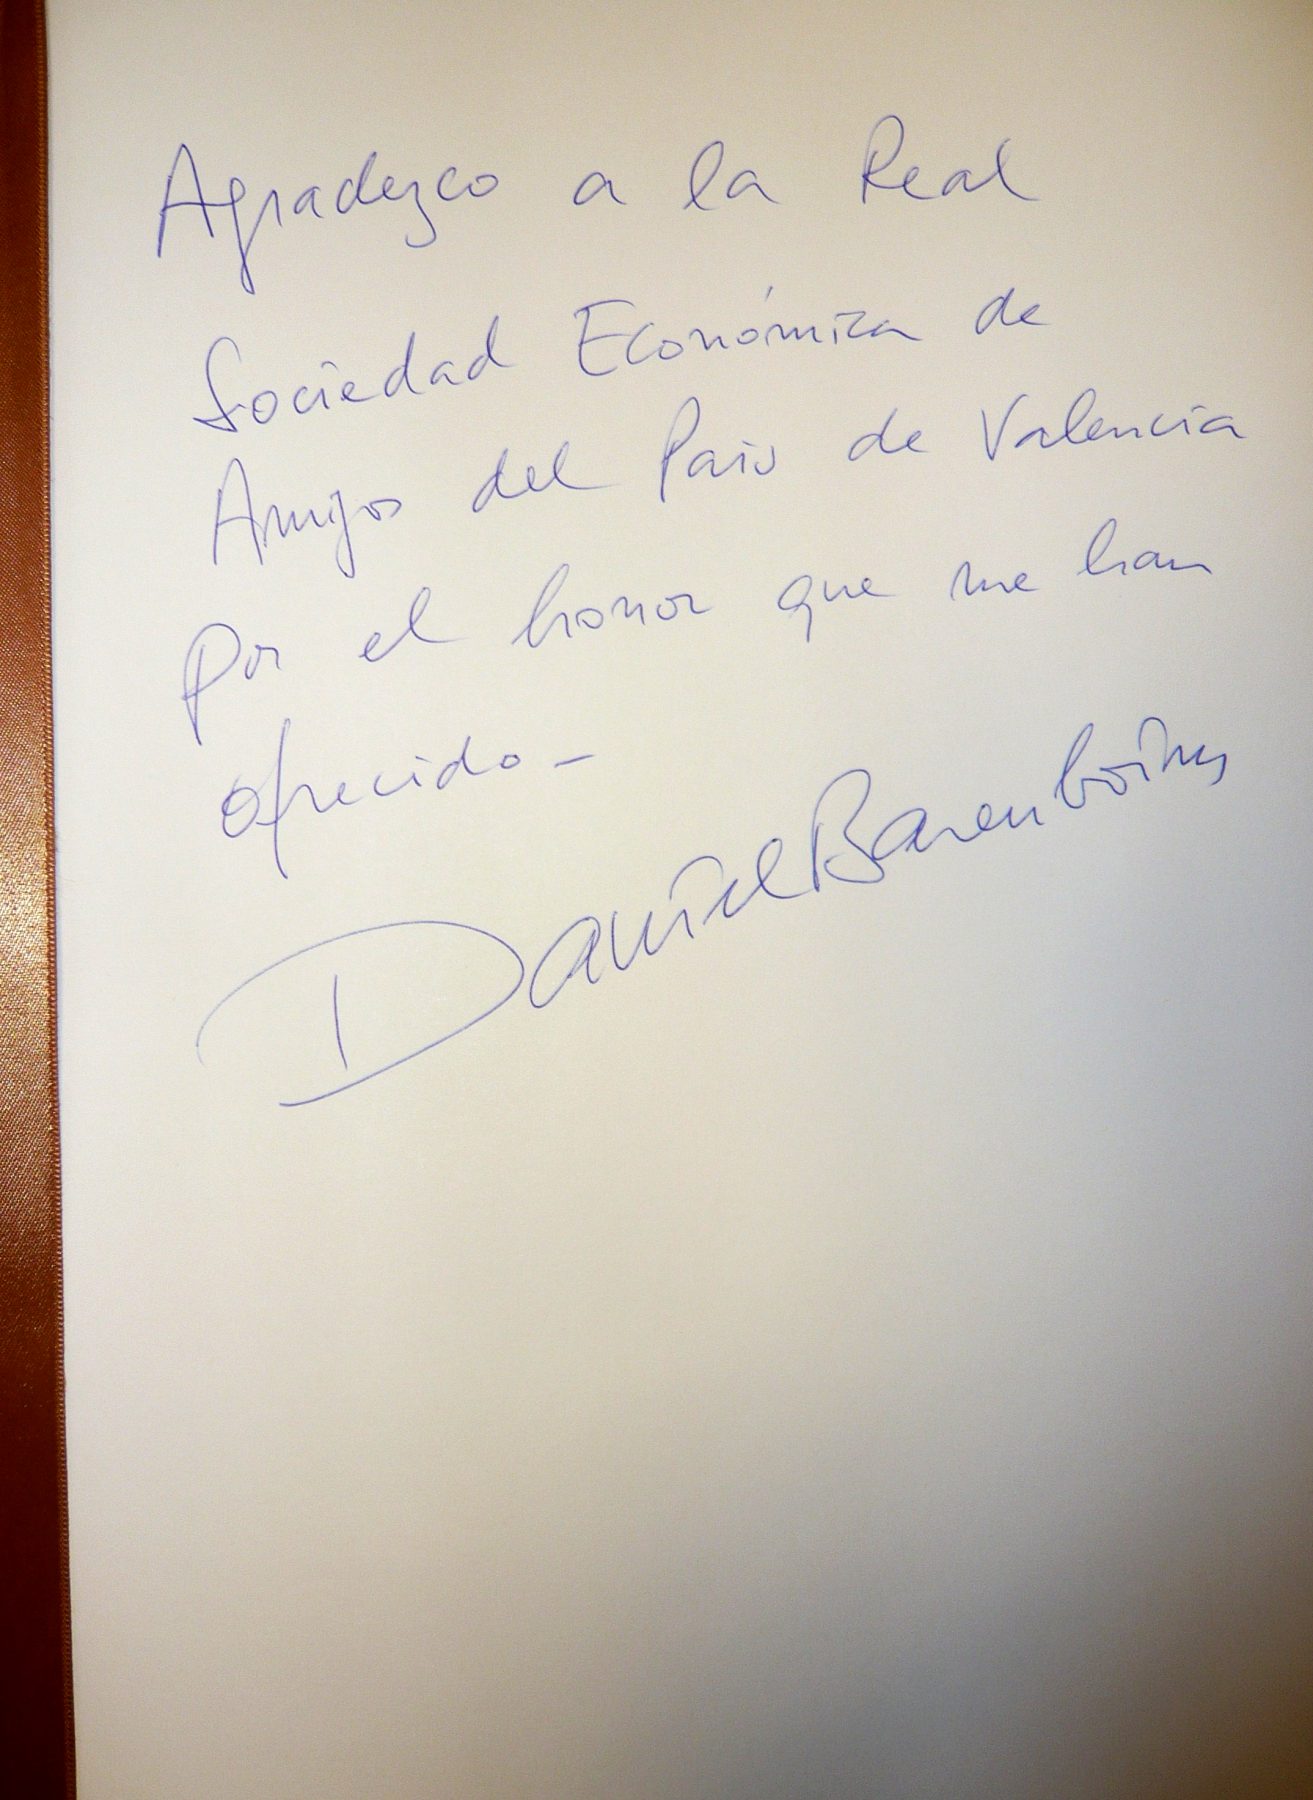 Agradezco a la Real
Sociedad Económica de
Amigos del Pais de Valencia
Por el honor que me han
ofrecido -
Daniel Barenboim